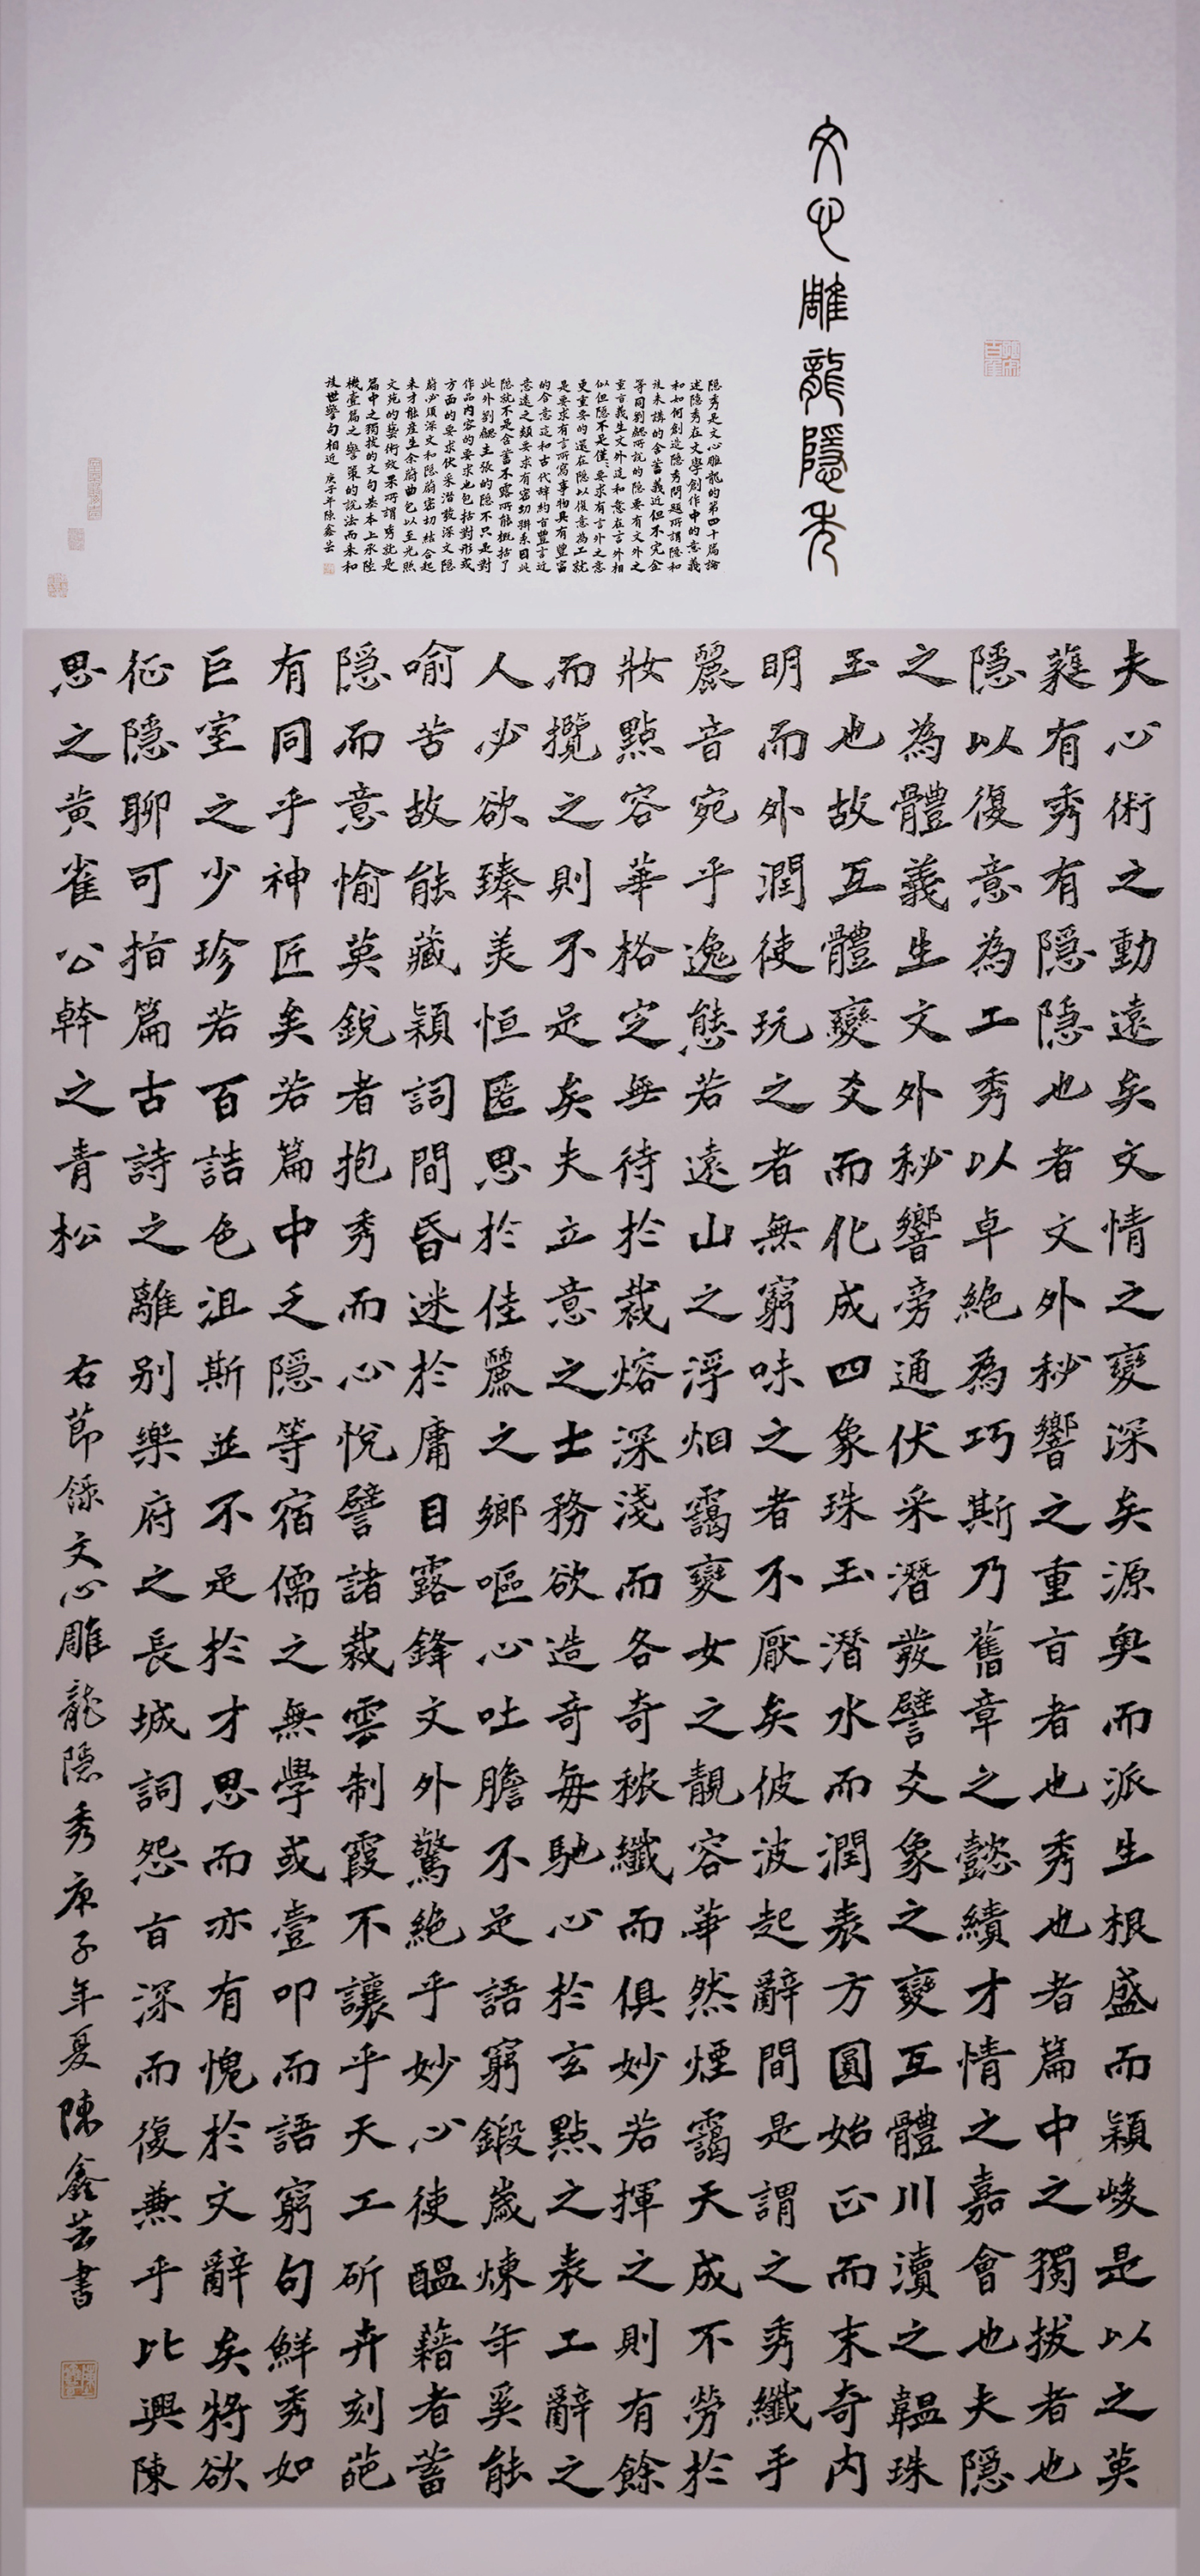 文心雕龍隱秀
隱秀是文心雕龍的第四十篇論
述隱秀在文學創作中的意義
和如何創造隱秀問題所謂隱和
後來講的含蓄義近但不完全
等同劉勰所說的隱要有文外之
重旨義生文外這和意在言外相
似但隱不是僅僅要求有言外之意
更重要的還在隱以復意為工就
是要求有言所寫事物具有豐富
的含意這和古代辭約旨豐言近
意遠之類要求有密切聯系因此
隱就不是含蓄不露所能概括了
此外劉勰主張的隱不只是對
作品內容的要求也包括對形或
方面的要求伏采潛發深文隱
蔚必須深文和隱蔚密切結合起
來才能產生余蔚曲包以至光照
文苑的藝術效果所謂秀就是
篇中之獨拔的文句基本上承陸
機壹篇之警策的說法而來和
後世警句相近 庚子年陳鑫芸
夫心術之動遠矣文情之變深矣源奧而派生根盛而穎峻是以之英
蕤有秀有隱隱也者文外秘響之重旨者也秀也者篇中之獨拔者也
隱以復意為工秀以卓絕為巧斯乃舊章之懿績才情之嘉會也夫隱
之為體義生文外秘響旁通伏采潛發譬爻象之變互體川瀆之韞珠
玉也故互體變爻而化成四象珠玉潛水而潤表方圓始正而末奇內
明而外潤使玩之者無窮味之者不厭矣彼波起辭間是謂之秀纖手
麗音宛乎逸態若遠山之浮烟靄變女之靚容華然煙靄天成不勞於
妝點容華格定無待於裁熔深淺而各奇穠纖而俱妙若揮之則有餘
而攬之則不足矣夫立意之士務欲造奇每馳心於玄點之表工辭之
人必欲臻美恒匿思於佳麗之鄉嘔心吐膽不足語窮鍛歲煉年奚能
喻苦故能藏穎詞間昏迷於庸目露鋒文外驚絕乎妙心使醞藉者蓄
隱而意愉英銳者抱秀而心悅譬諸裁雲制霞不讓乎天工斫卉刻葩
有同乎神匠矣若篇中乏隱等宿儒之無學或壹叩而語窮句鮮秀如
巨室之少珍若百詰色沮斯並不足於才思而亦有愧於文辭矣將欲
征隱聊可指篇古詩之離別樂府之長城詞怨旨深而復兼乎比興陳
思之黃雀公幹之青松 右節錄文心雕龍隱秀庚子年夏陳鑫芸書